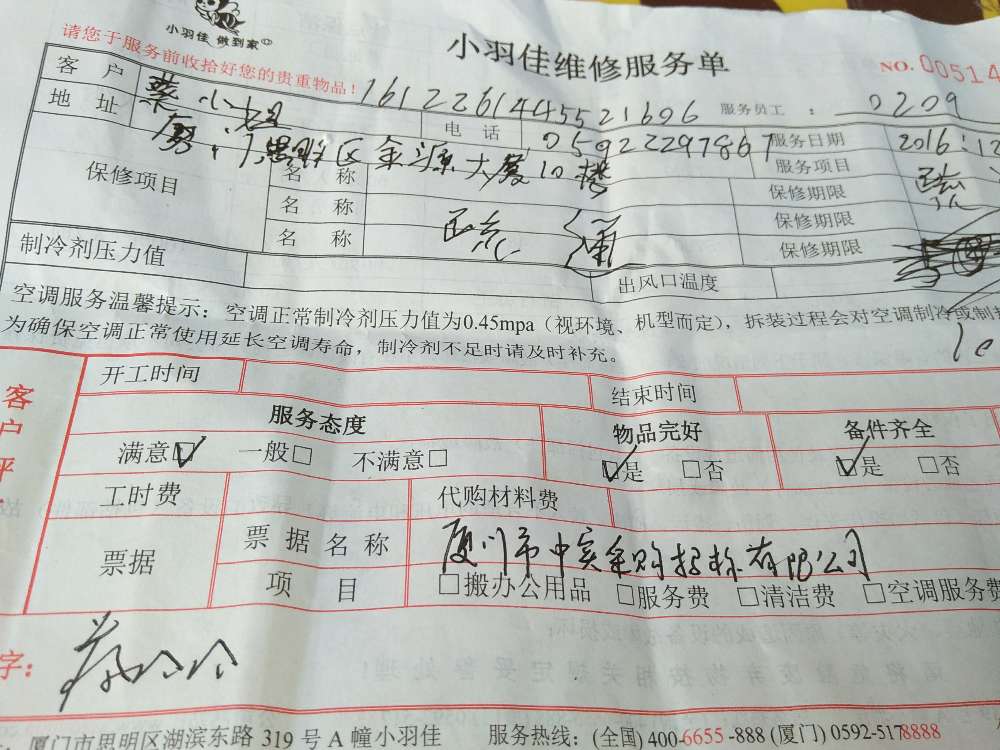 小羽佳 做到家
小羽佳维修服务单
NO. 00514
请您于服务前收拾好您的贵重物品！
客户 蔡小姐 16122614445521606 服务员工： 0209
地址 厦门思明区金源大厦10楼 电话 05922297867 服务日期 2016.12
保修项目 名称 服务项目
保修期限
名称 保修期限
名称 保修期限
制冷剂压力值 出风口温度
空调服务温馨提示：空调正常制冷剂压力值为0.45mpa（视环境、机型而定），拆装过程会对空调制冷或制
为确保空调正常使用延长空调寿命，制冷剂不足时请及时补充。
开工时间 结束时间
客户评
服务态度 物品完好 备件齐全
满意☑ 一般□ 不满意□ ☑是 □否 ☑是 □否
工时费 代购材料费
票据 票据名称 厦门市中实采购招标有限公司
项目 □搬办公用品 □服务费 □清洁费 □空调服务费
字：
厦门市思明区湖滨东路 319 号 A 幢小羽佳 服务热线：(全国) 400-6655-888 (厦门) 0592-5178888